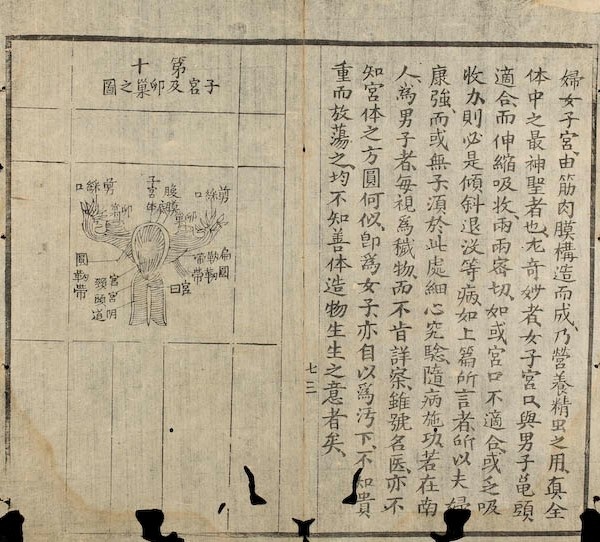 婦女子宮、由筋肉膜構造而成、乃營養精虫之用、真全
体中之最神聖者也、尤奇妙者、女子宮口與男子亀頭
適合、而伸縮吸收、兩兩密切、如或宮口不適合、或乏吸
收力、則必是傾斜退没等病、如上篇所言者、所以夫婦
康強、而或無子、須於此處細心究驗、隨病施功、若在南
人、為男子者、每視為穢物、而不肯詳察、雖號名医、亦不
知宮体之方圓何似、即為女子、亦自以為汚下、不知貴
重而放蕩之、均不知善体造物生生之意者矣、
七三
第十
子宮及卵巢之圖
剪綵口
卵巢
腹膜
子宮体底
卵巢
剪綵口
扁圓
靭帶
宮口
宮明
宮頭道
頚
圓靭帶